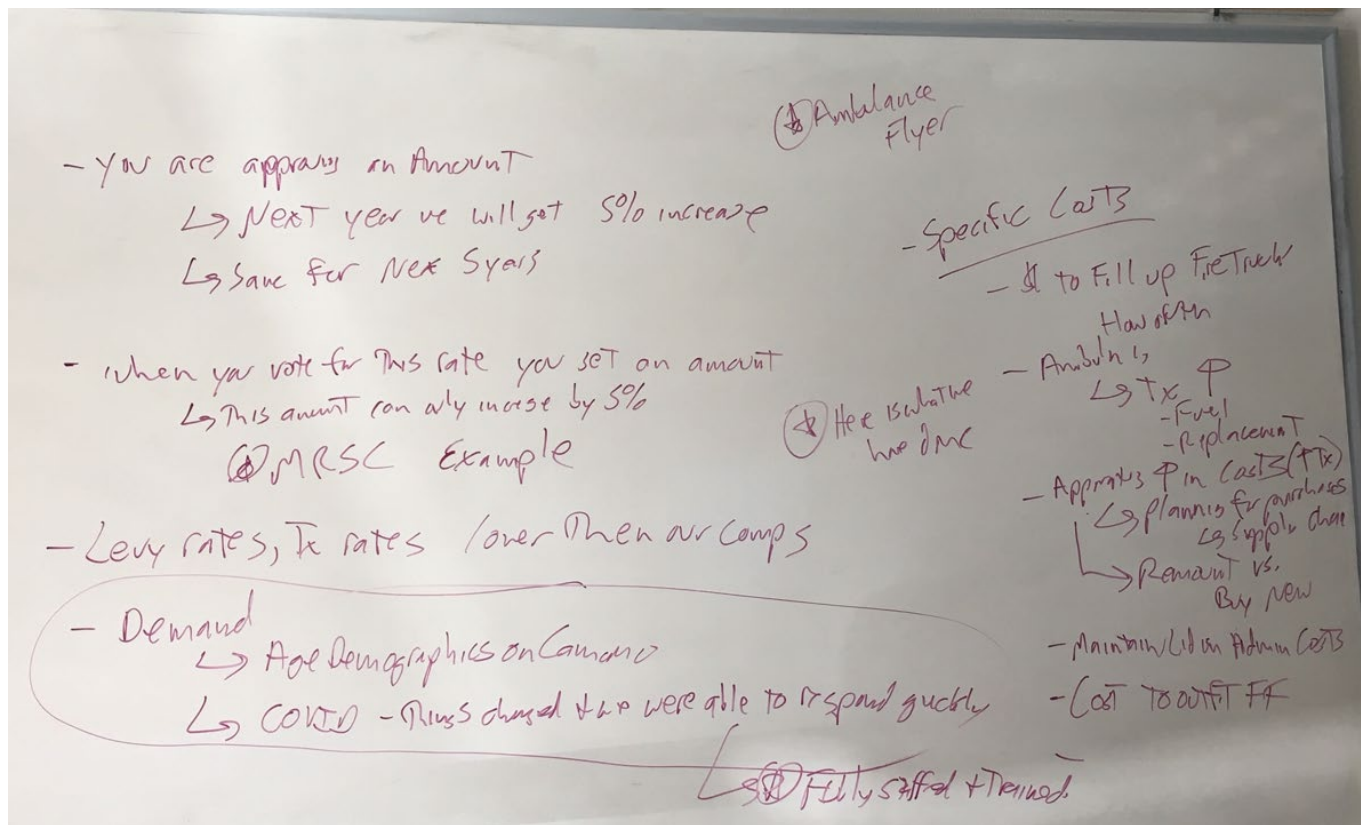 Ambalance
Flyer
- You are approving an Amount
↳ Next year we will get 5% increase
↳ Save for Next 5 years
- When you vote for This rate you set an amount
↳ This amount can only increase by 5%
MRSC Example
- Levy rates, Tx rates lower Then our comps
- Demand
↳ Age Demographics on Camano
↳ COVID - Things changed + we were able to respond quickly
↳ Fully staffed + Trained
Here is what we
have done
- Specific Costs
- $ to Fill up Fire Truck
How often
-
↳ Tx ↑
- Fuel
- Replacement
- Apparatus ↑ in Costs (↑Tx)
↳ Planning for purchases
↳ Supply chain
↳ Remount vs.
Buy New
- Maintain Lid on Admin Costs
- Cost To outfit FF